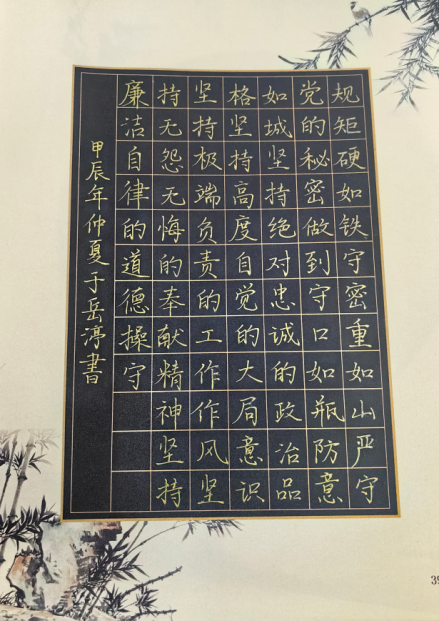 规矩硬如铁守密重如山严守
党的秘密做到守口如瓶防意
如城坚持绝对忠诚的政治品
格坚持高度自觉的大局意识
坚持极端负责的工作作风坚
持无怨无悔的奉献精神坚持
廉洁自律的道德操守
甲辰年仲夏于岳渟書